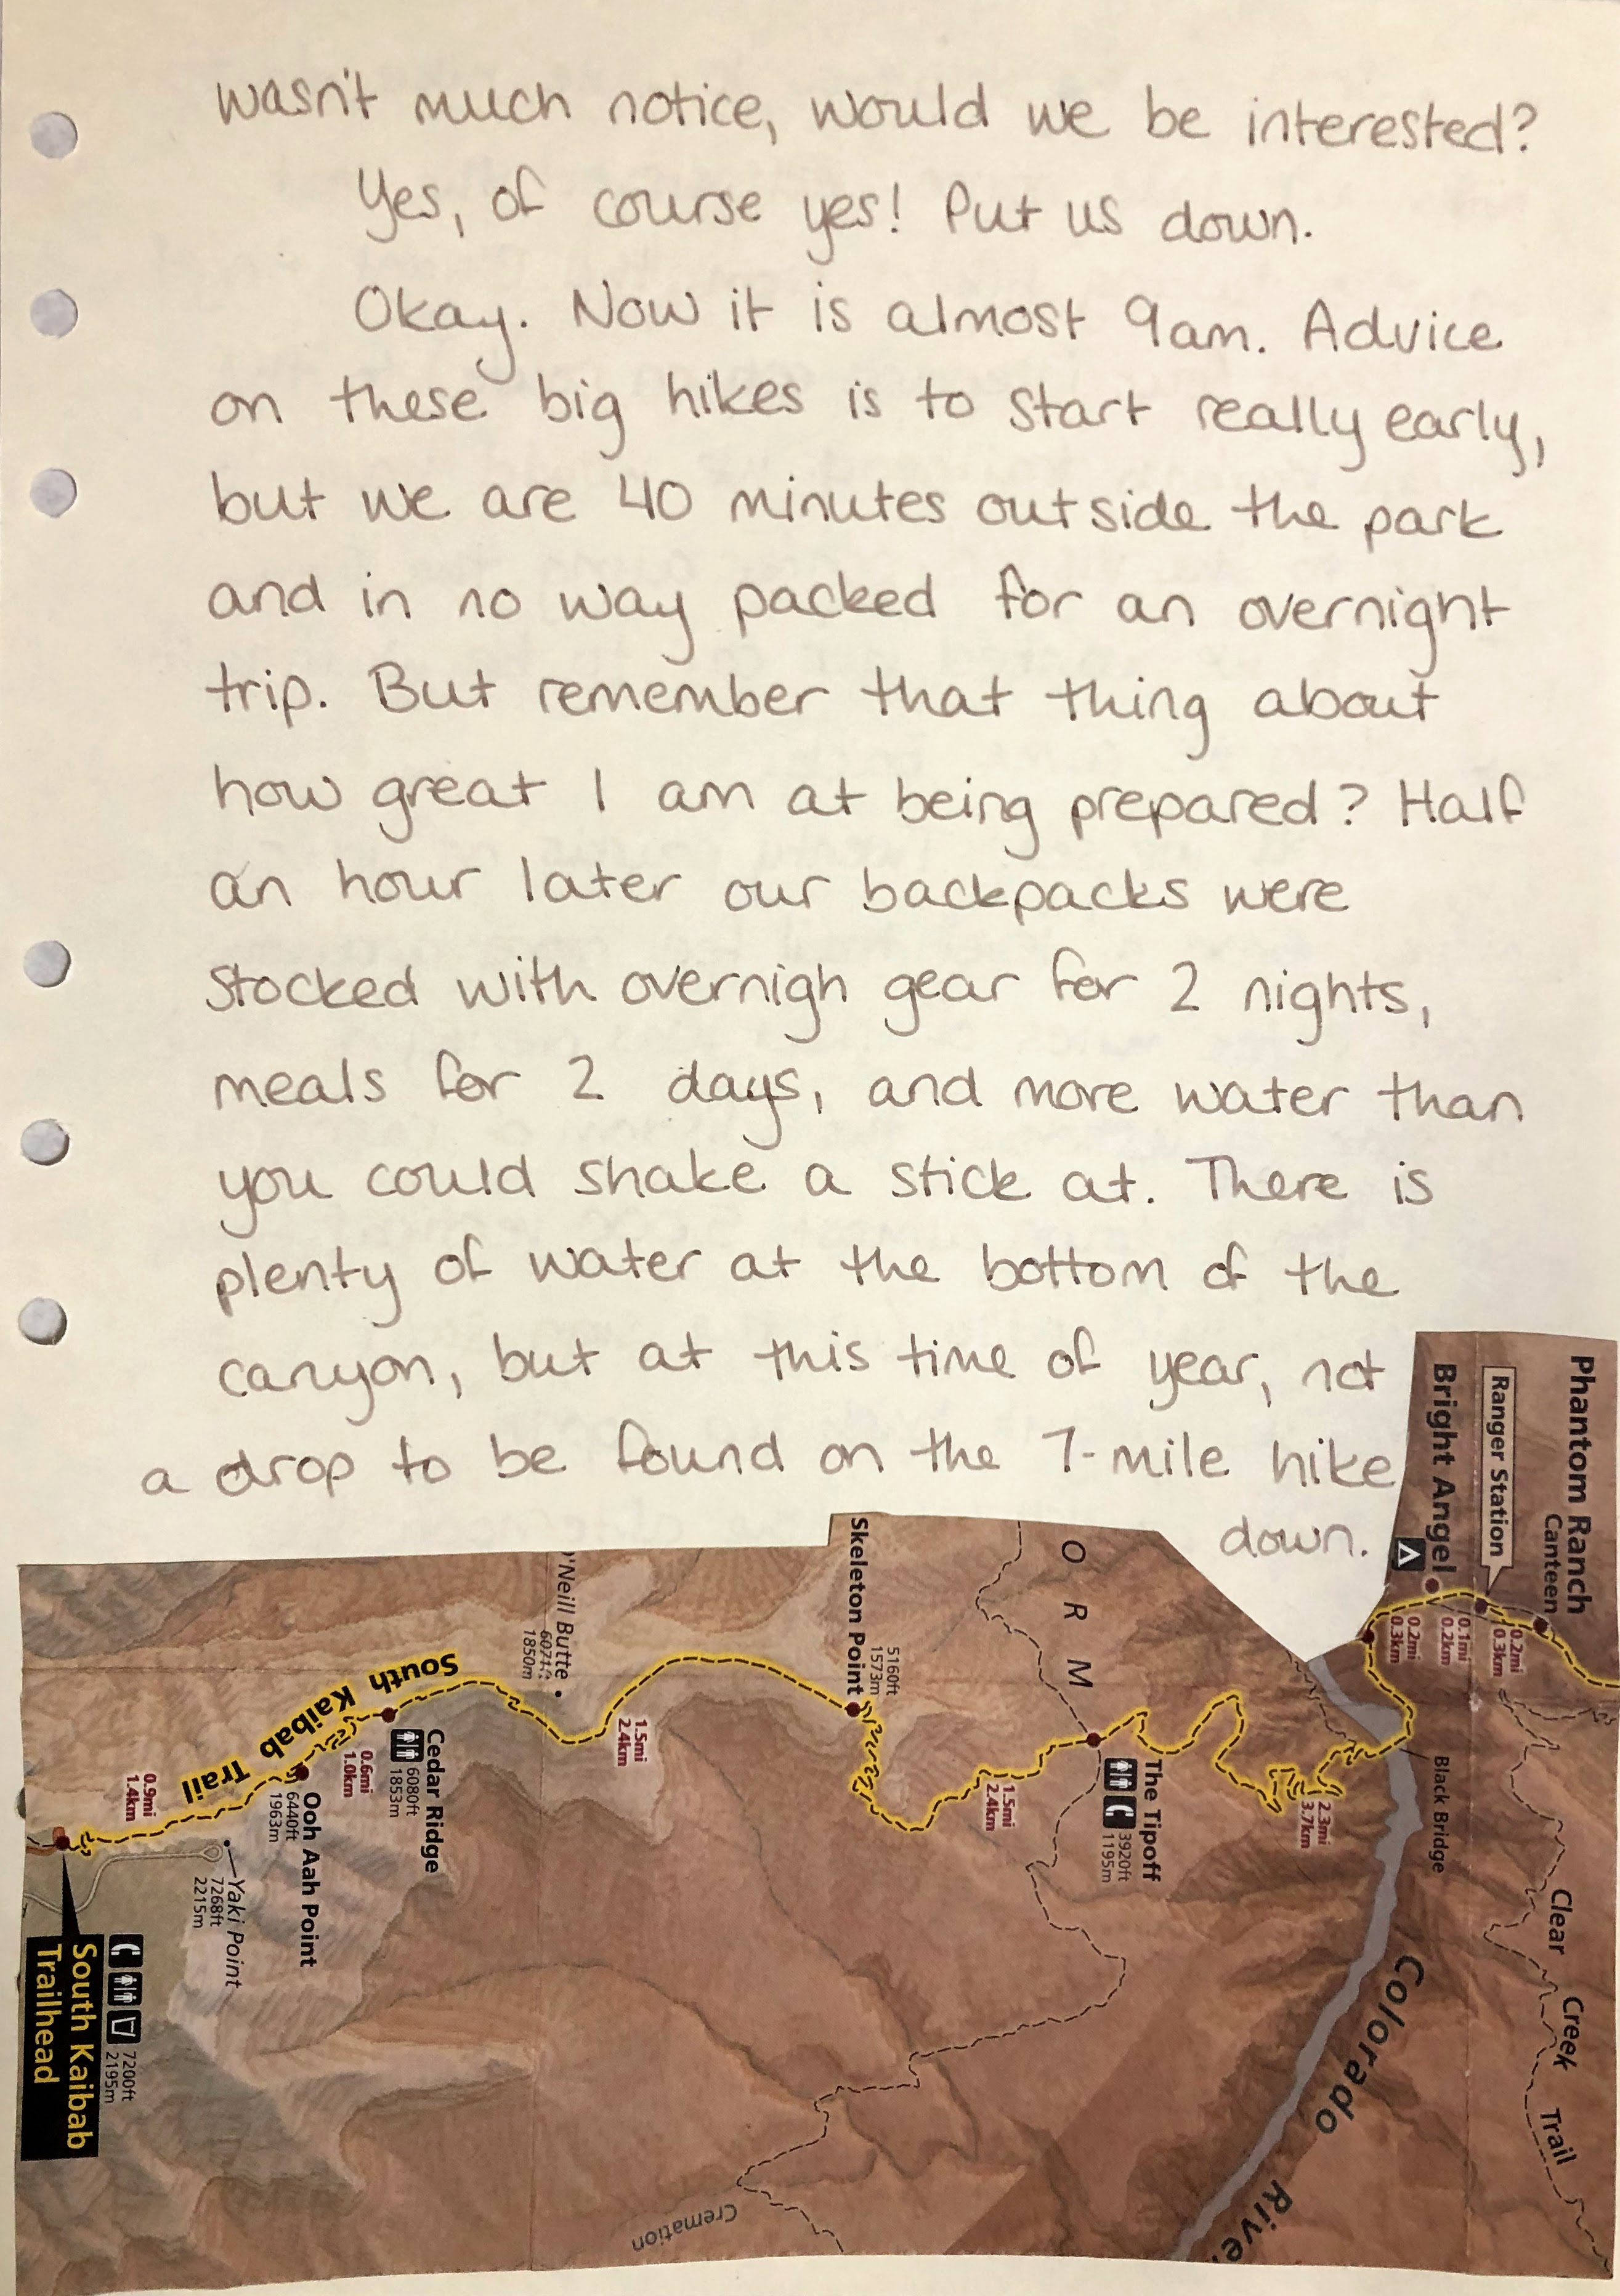 wasn't much notice, would we be interested?
Yes, of course yes! Put us down.
Okay. Now it is almost 9am. Advice
on these big hikes is to start really early,
but we are 40 minutes outside the park
and in no way packed for an overnight
trip. But remember that thing about
how great I am at being prepared? Half
an hour later our backpacks were
stocked with overnigh gear for 2 nights,
meals for 2 days, and more water than
you could shake a stick at. There is
plenty of water at the bottom of the
canyon, but at this time of year, not
a drop to be found on the 7-mile hike
down.
Phantom Ranch
Canteen
Ranger Station
Bright Angel
0.2mi
0.3km
0.1mi
0.2km
0.2mi
0.3km
Black Bridge
Clear Creek Trail
Colorado
River
2.3mi
3.7km
The Tipoff
3920ft
1195m
O R M
1.5mi
2.4km
Skeleton Point
5160ft
1573m
1.5mi
2.4km
O'Neill Butte
6071ft
1850m
South Kaibab Trail
Cedar Ridge
6080ft
1853m
0.6mi
1.0km
Ooh Aah Point
6440ft
1963m
0.9mi
1.4km
Yaki Point
7268ft
2215m
South Kaibab
Trailhead
7200ft
2195m
Cremation